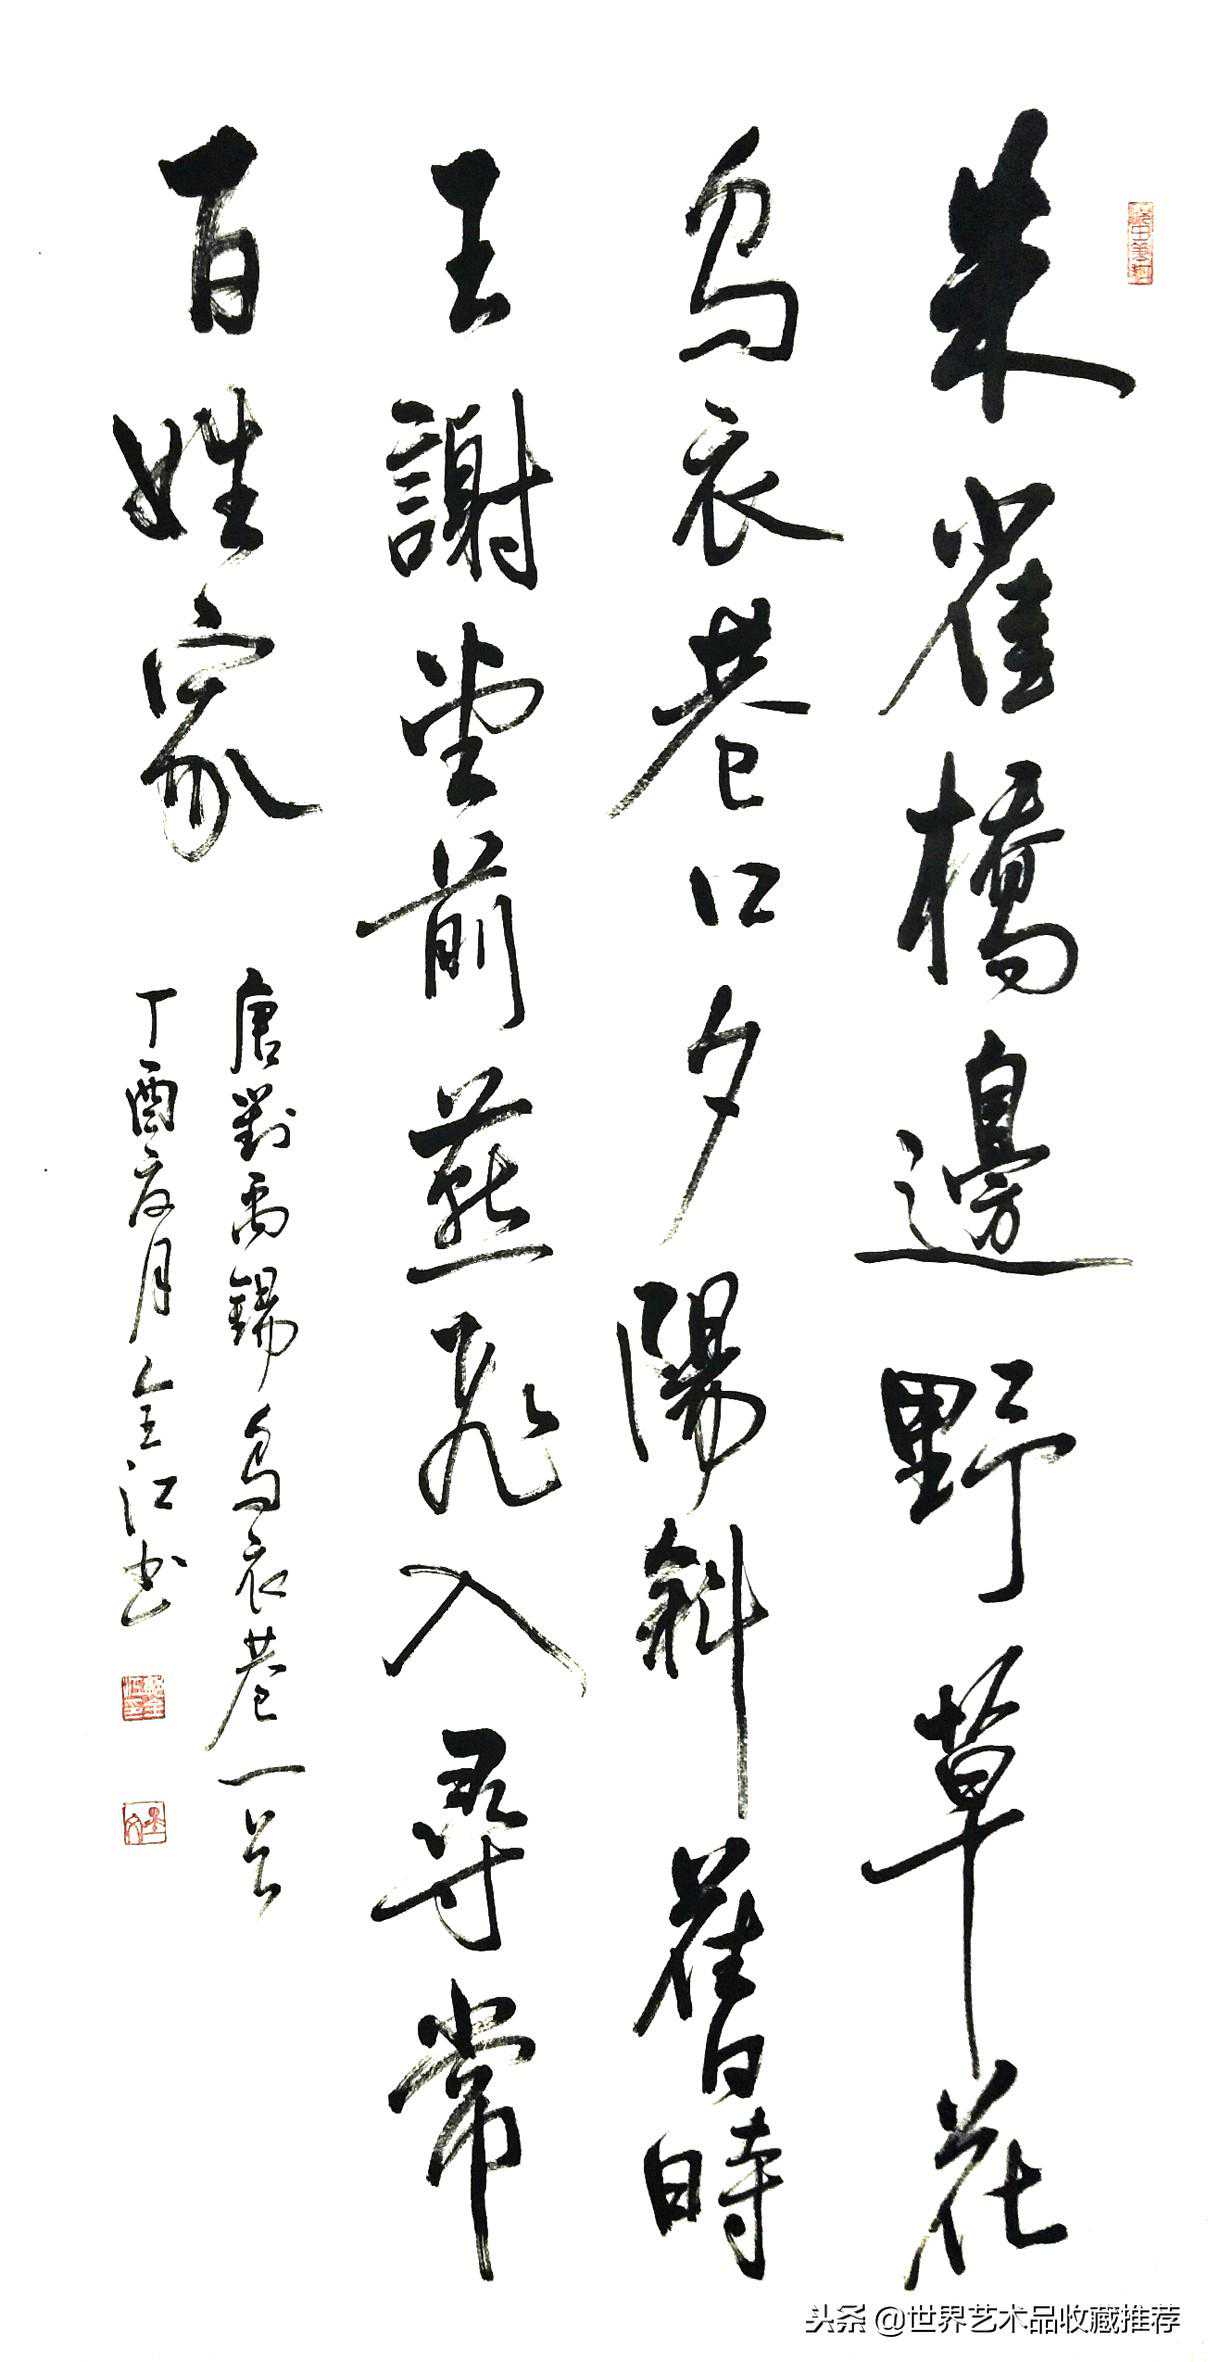 朱雀橋邊野草花
烏衣巷口夕陽斜舊時
王謝堂前燕飛入尋常
百姓家
唐劉禹錫烏衣巷一首
丁酉夏月金江书
头条 @世界艺术品收藏推荐